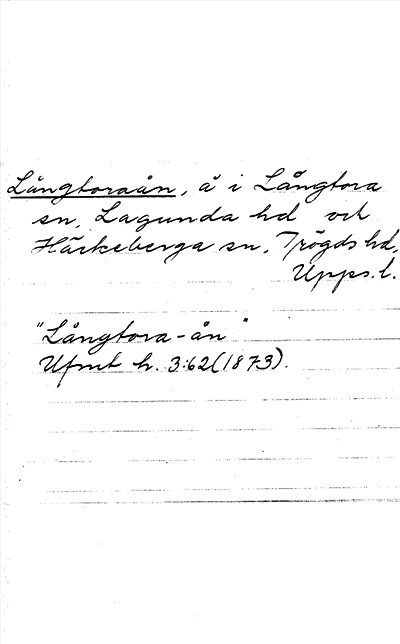 Långtoraån, å i Långtora
sn, Lagunda hd och
Härkeberga sn, Trögds hd,
Upps. l.
"Långtora-ån"
Ufmt h. 3:62(1873).